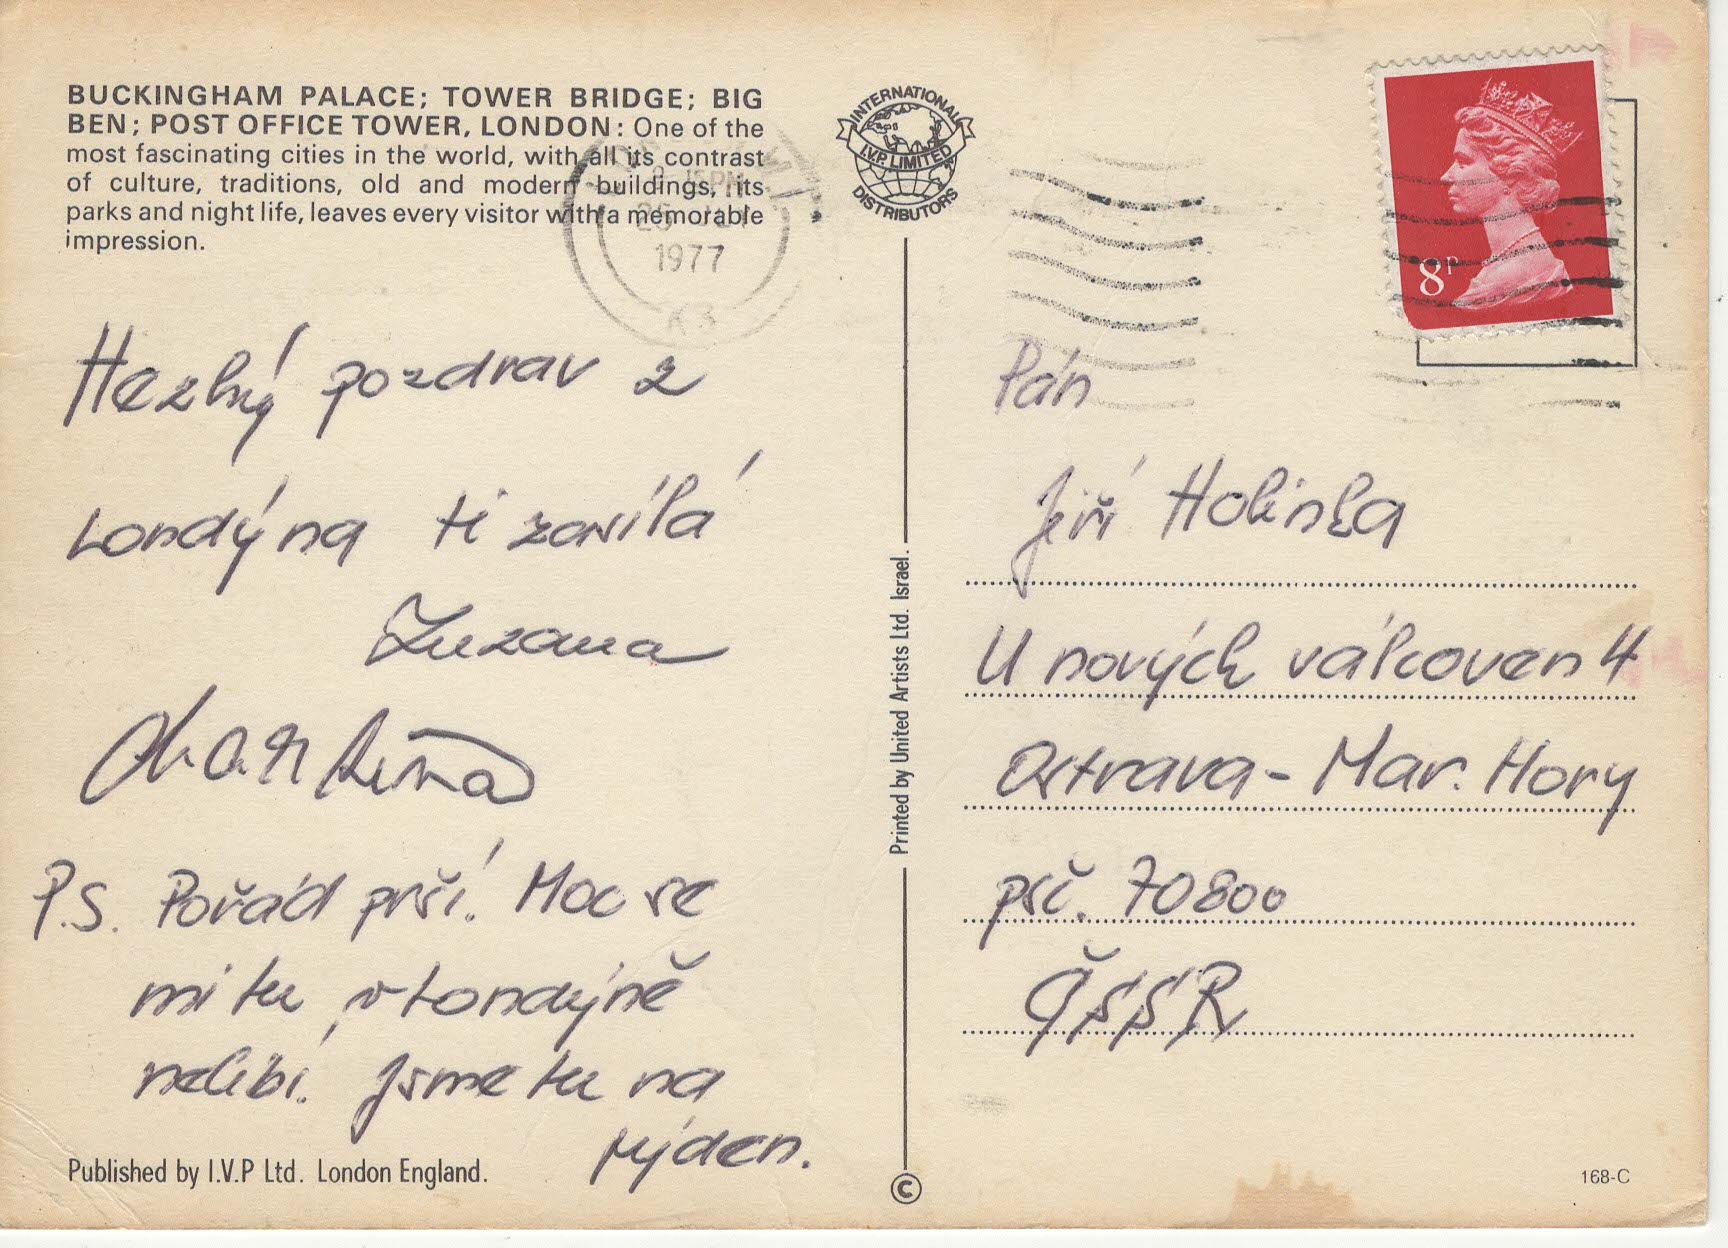 BUCKINGHAM PALACE; TOWER BRIDGE; BIG
BEN; POST OFFICE TOWER, LONDON: One of the
most fascinating cities in the world, with all its contrast
of culture, traditions, old and modern buildings, its
parks and night life, leaves every visitor with a memorable
impression.
1977
Hezký pozdrav z
Londýna ti zasílá
Zuzana
P.S. Pořád prší. Moc se
mi tu v Londýně
nelíbí. Jsme tu na
týden.
Published by I.V.P Ltd. London England.
INTERNATIONAL
I.V.P. LIMITED
DISTRIBUTORS
Printed by United Artists Ltd. Israel.
©
8P
Pán
Jiří Holinka
U nových válcoven 4
Ostrava - Mar. Hory
psč. 70800
ČSSR
168-C